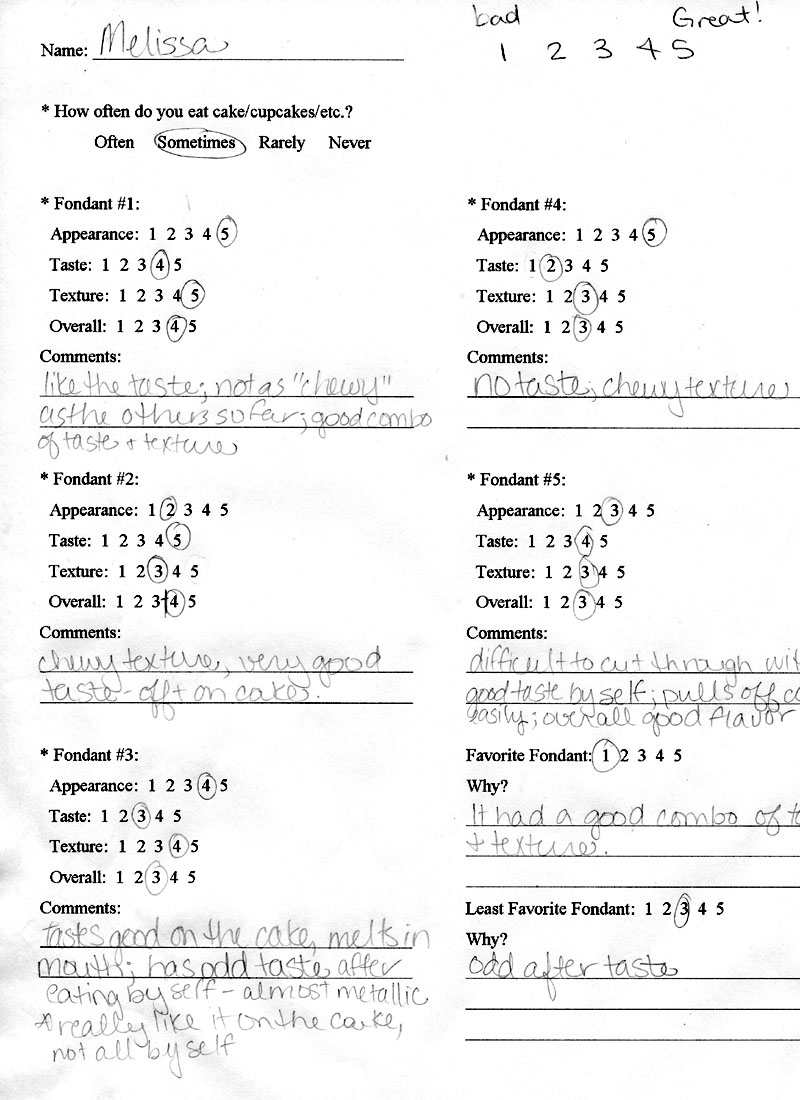 Name: Melissa
bad Great!
1 2 3 4 5
* How often do you eat cake/cupcakes/etc.?
Often Sometimes Rarely Never
* Fondant #1:
Appearance: 1 2 3 4 5
Taste: 1 2 3 4 5
Texture: 1 2 3 4 5
Overall: 1 2 3 4 5
Comments:
like the taste; not as "chewy"
as the others so far; good combo
of taste + texture
* Fondant #2:
Appearance: 1 2 3 4 5
Taste: 1 2 3 4 5
Texture: 1 2 3 4 5
Overall: 1 2 3 4 5
Comments:
chewy texture, very good
taste - off + on cake.
* Fondant #3:
Appearance: 1 2 3 4 5
Taste: 1 2 3 4 5
Texture: 1 2 3 4 5
Overall: 1 2 3 4 5
Comments:
tastes good on the cake, melts in
mouth; has odd taste after
eating by self - almost metallic
* really like it on the cake,
not all by self
* Fondant #4:
Appearance: 1 2 3 4 5
Taste: 1 2 3 4 5
Texture: 1 2 3 4 5
Overall: 1 2 3 4 5
Comments:
no taste; chewy texture
* Fondant #5:
Appearance: 1 2 3 4 5
Taste: 1 2 3 4 5
Texture: 1 2 3 4 5
Overall: 1 2 3 4 5
Comments:
difficult to cut through
good taste by self; pulls off
easily; overall good flavor
Favorite Fondant: 1 2 3 4 5
Why?
It had a good combo of
+ texture.
Least Favorite Fondant: 1 2 3 4 5
Why?
odd after taste